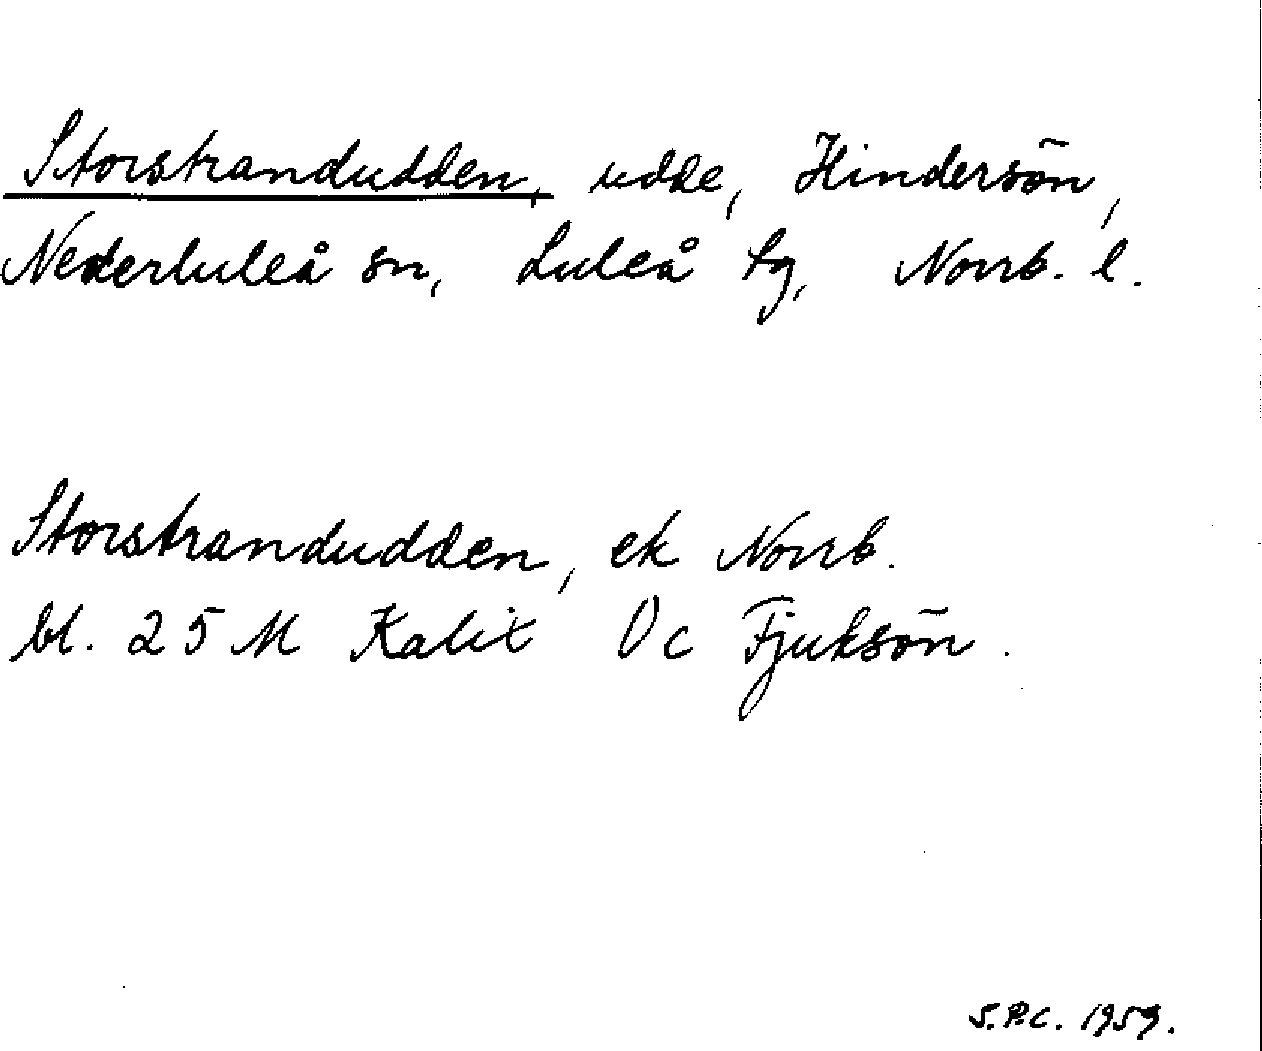 Storstrandudden, udde, Hindersön,
Nederluleå sn, Luleå tg, Norrb. l.
Storstrandudden, ek Norrb.
bl. 25 M Kalix Oc Fjuksön.
S.P.C. 1959.